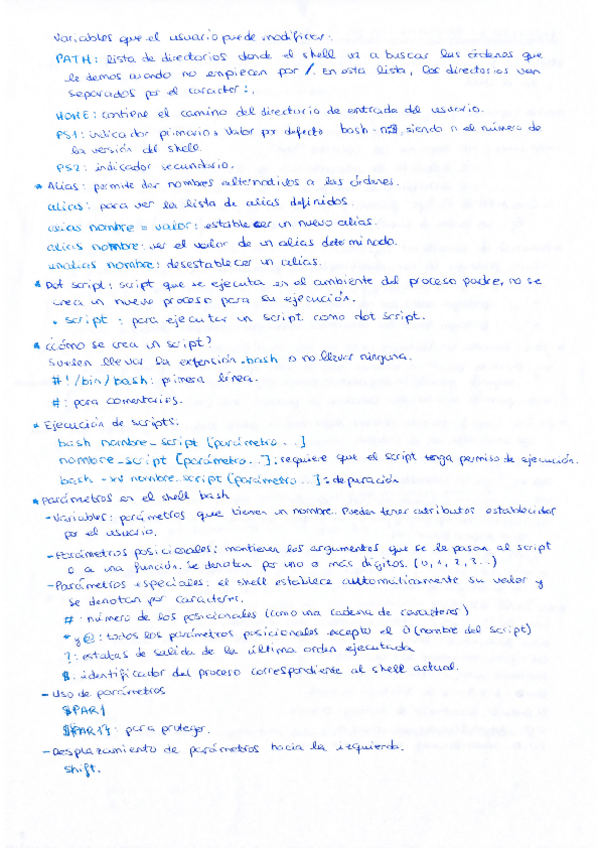 Variables que el usuario puede modificar:
PATH: lista de directorios donde el shell va a buscar las órdenes que
le demos cuando no empiecen por /. En esta lista, los directorios van
separados por el caracter :.
HOME: contiene el camino del directorio de entrada del usuario.
PS1: indicador primario, valor por defecto bash-n$, siendo n el número de
la versión del shell.
PS2: indicador secundario.
* Alias: permite dar nombres alternativos a las órdenes.
alias: para ver la lista de alias definidos.
alias nombre = valor: establecer un nuevo alias.
alias nombre: ver el valor de un alias determinado.
unalias nombre: desestablecer un alias.
* Dot script: script que se ejecuta en el ambiente del proceso padre, no se
crea un nuevo proceso para su ejecución.
. script : para ejecutar un script como dot script.
* ¿Cómo se crea un script?
Suelen llevar la extensión .bash o no llevar ninguna.
#!/bin/bash: primera línea.
#: para comentarios.
* Ejecución de scripts:
bash nombre_script [parámetro...]
nombre_script [parámetro...]: requiere que el script tenga permiso de ejecución.
bash -xv nombre_script [parámetro...]: depuración
* Parámetros en el shell bash
- Variables: parámetros que tienen un nombre. Pueden tener atributos establecidos
por el usuario.
- Parámetros posicionales: mantienen los argumentos que se le pasan al script
o a una función. Se denotan por uno o más dígitos. (0, 1, 2, 3...)
- Parámetros especiales: el shell establece automáticamente su valor y
se denotan por caracteres.
#: número de los posicionales (como una cadena de caracteres)
* y @: todos los parámetros posicionales excepto el 0 (nombre del script)
?: estatus de salida de la última orden ejecutada
$: identificador del proceso correspondiente al shell actual.
- Uso de parámetros
$PAR1
${PAR1}: para proteger.
- Desplazamiento de parámetros hacia la izquierda.
shift.